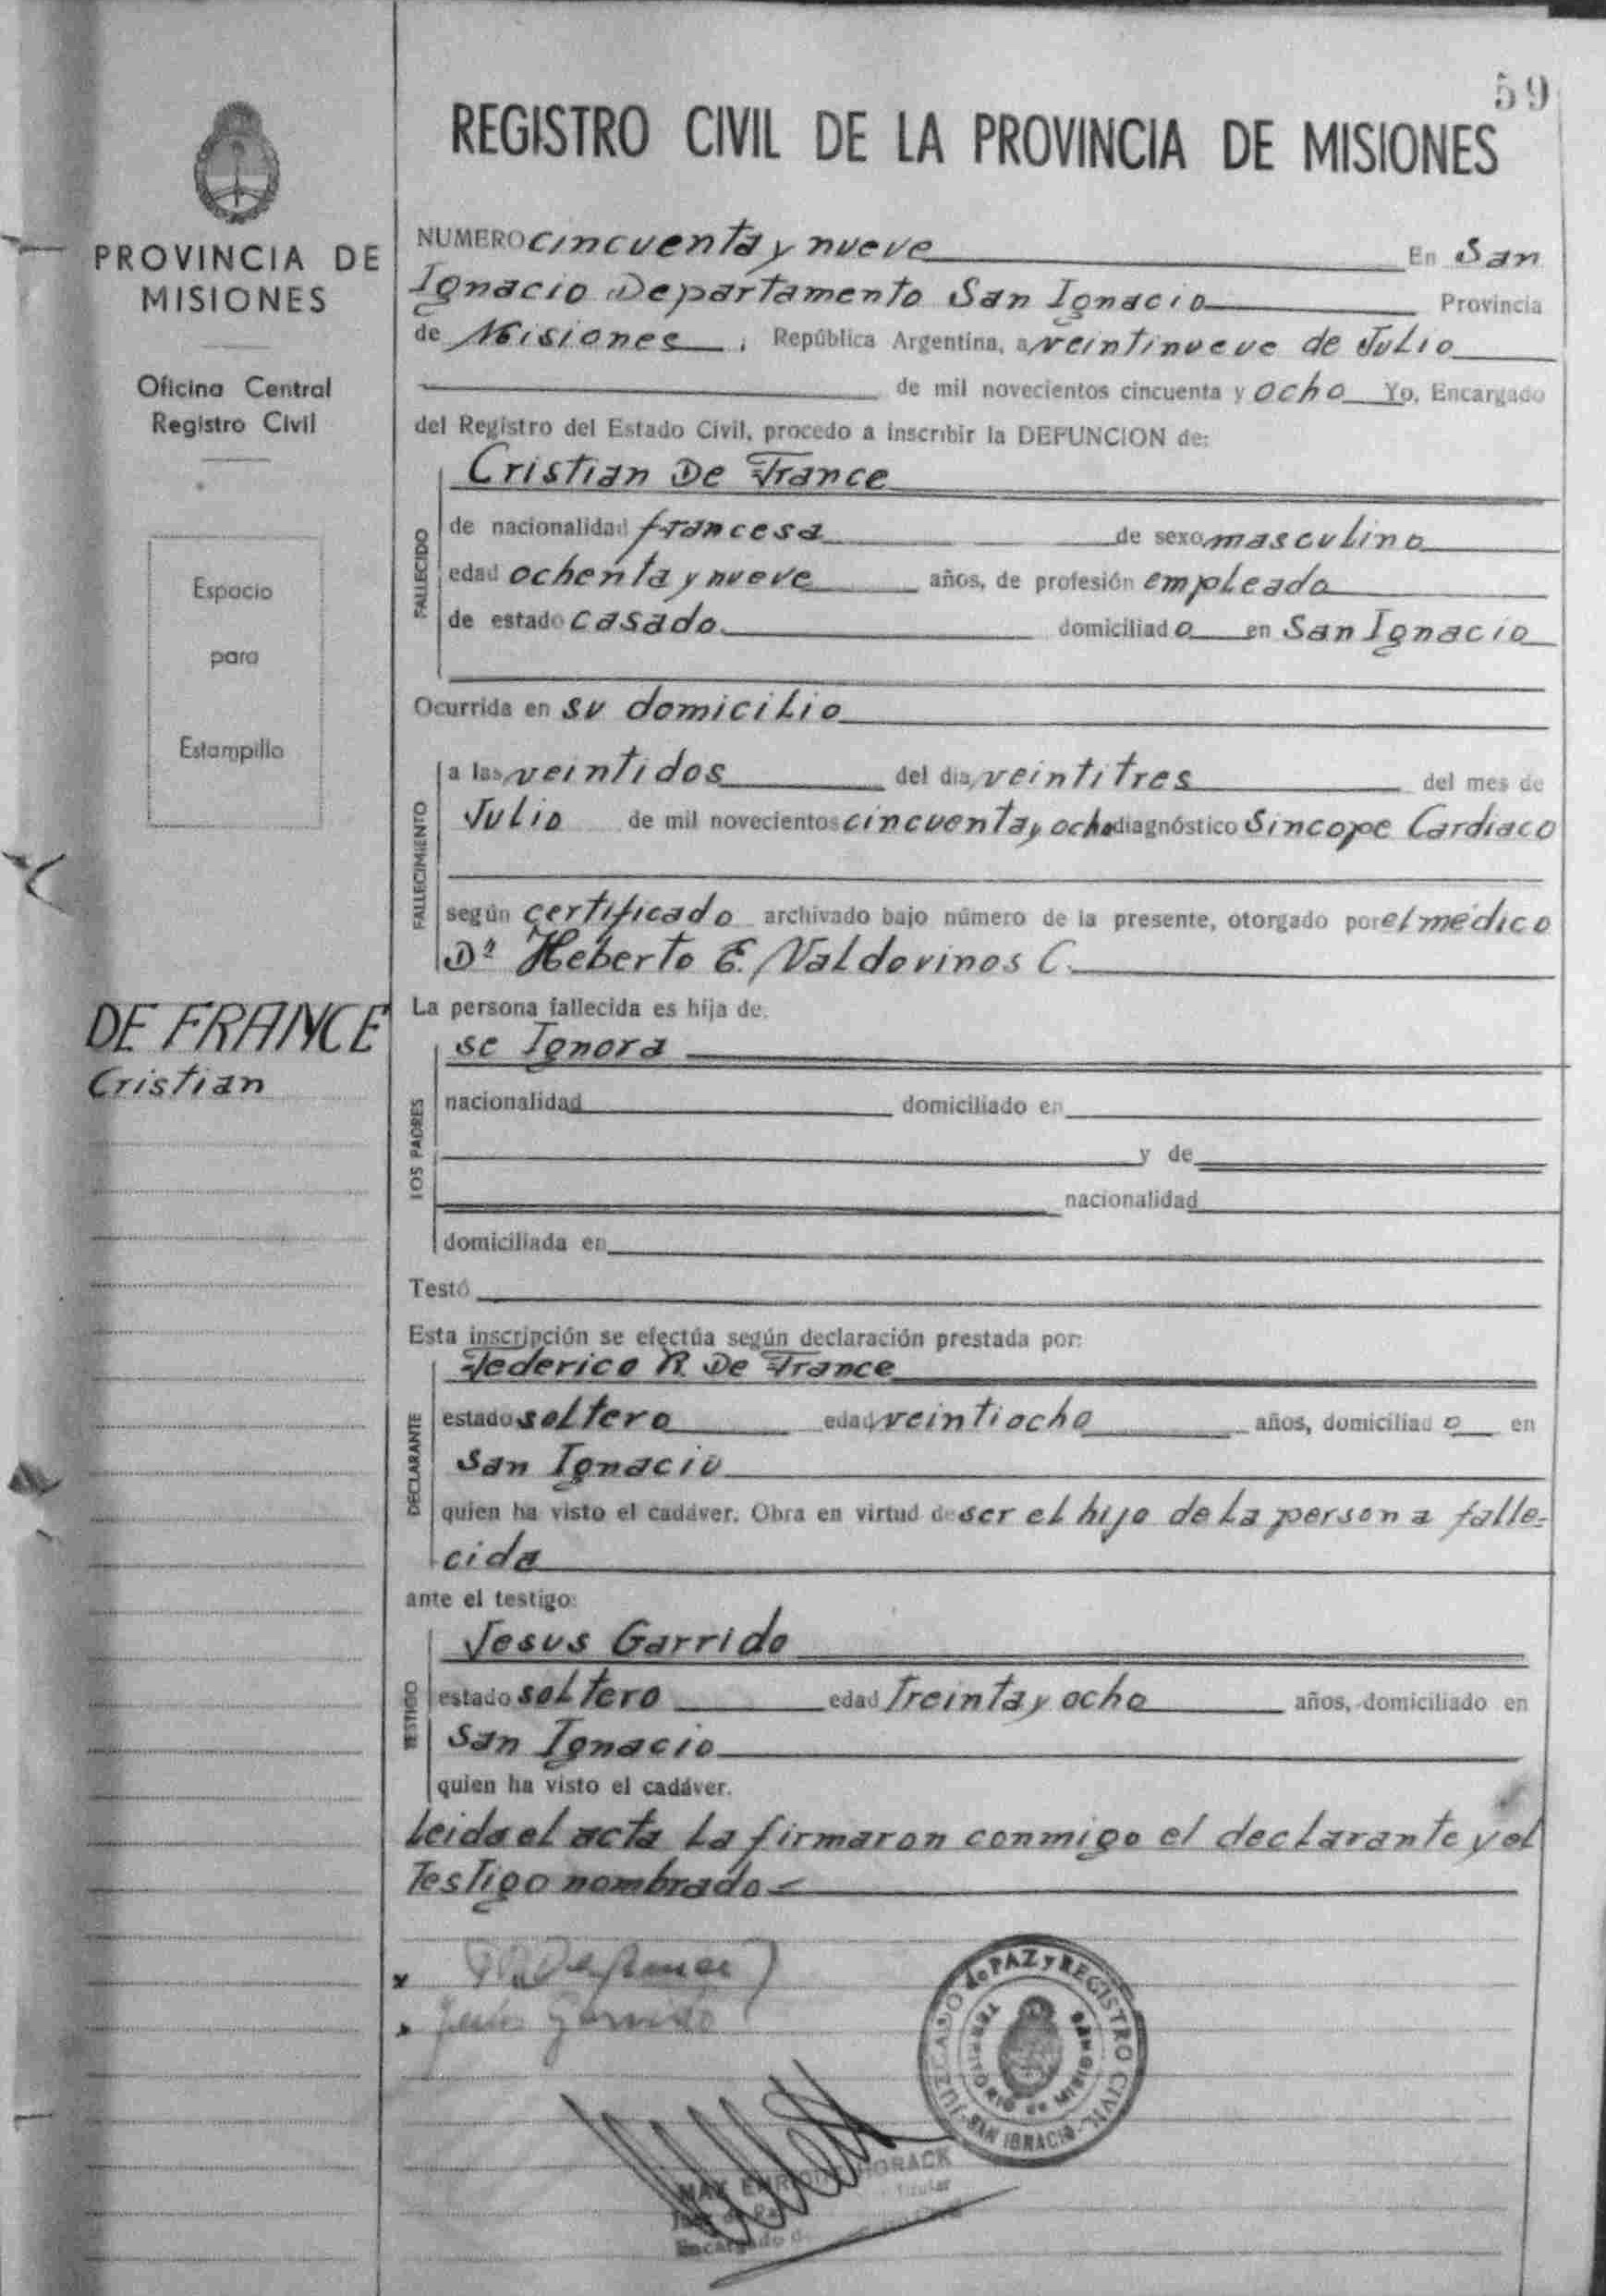 59
REGISTRO CIVIL DE LA PROVINCIA DE MISIONES
PROVINCIA DE
MISIONES
Oficina Central
Registro Civil
Espacio
para
Estampilla
DE FRANCE
Cristian
NUMERO cincuenta y nueve En San
Ignacio Departamento San Ignacio Provincia
de Misiones, República Argentina, a veintinueve de Julio
de mil novecientos cincuenta y ocho Yo, Encargado
del Registro del Estado Civil, procedo a inscribir la DEFUNCION de:
Cristian De France
FALLECIDO
de nacionalidad francesa de sexo masculino
edad ochenta y nueve años, de profesión empleado
de estado casado domiciliado en San Ignacio
Ocurrida en su domicilio
FALLECIMIENTO
a las veintidos del dia veintitres del mes de
Julio de mil novecientos cincuenta y ocho diagnóstico Sincope Cardiaco
según certificado archivado bajo número de la presente, otorgado por el médico
Dº Heberto E. Valdovinos C.
La persona fallecida es hija de:
se Ignora
LOS PADRES
nacionalidad domiciliado en
y de
nacionalidad
domiciliada en
Testó
Esta inscripción se efectúa según declaración prestada por:
Federico R. De France
DECLARANTE
estado soltero edad veintiocho años, domiciliado en
San Ignacio
quien ha visto el cadáver. Obra en virtud de ser el hijo de la persona falle-
cida
ante el testigo:
Jesus Garrido
TESTIGO
estado soltero edad Treinta y ocho años, domiciliado en
San Ignacio
quien ha visto el cadáver.
Leida el acta la firmaron conmigo el declarante y el
Testigo nombrado
Jesús Garrido
JUZGADO de PAZ y REGISTRO CIVIL
SAN IGNACIO
TERRITORIO de MISIONES
MAX ENRIQUE HORACK
Titular
Encargado